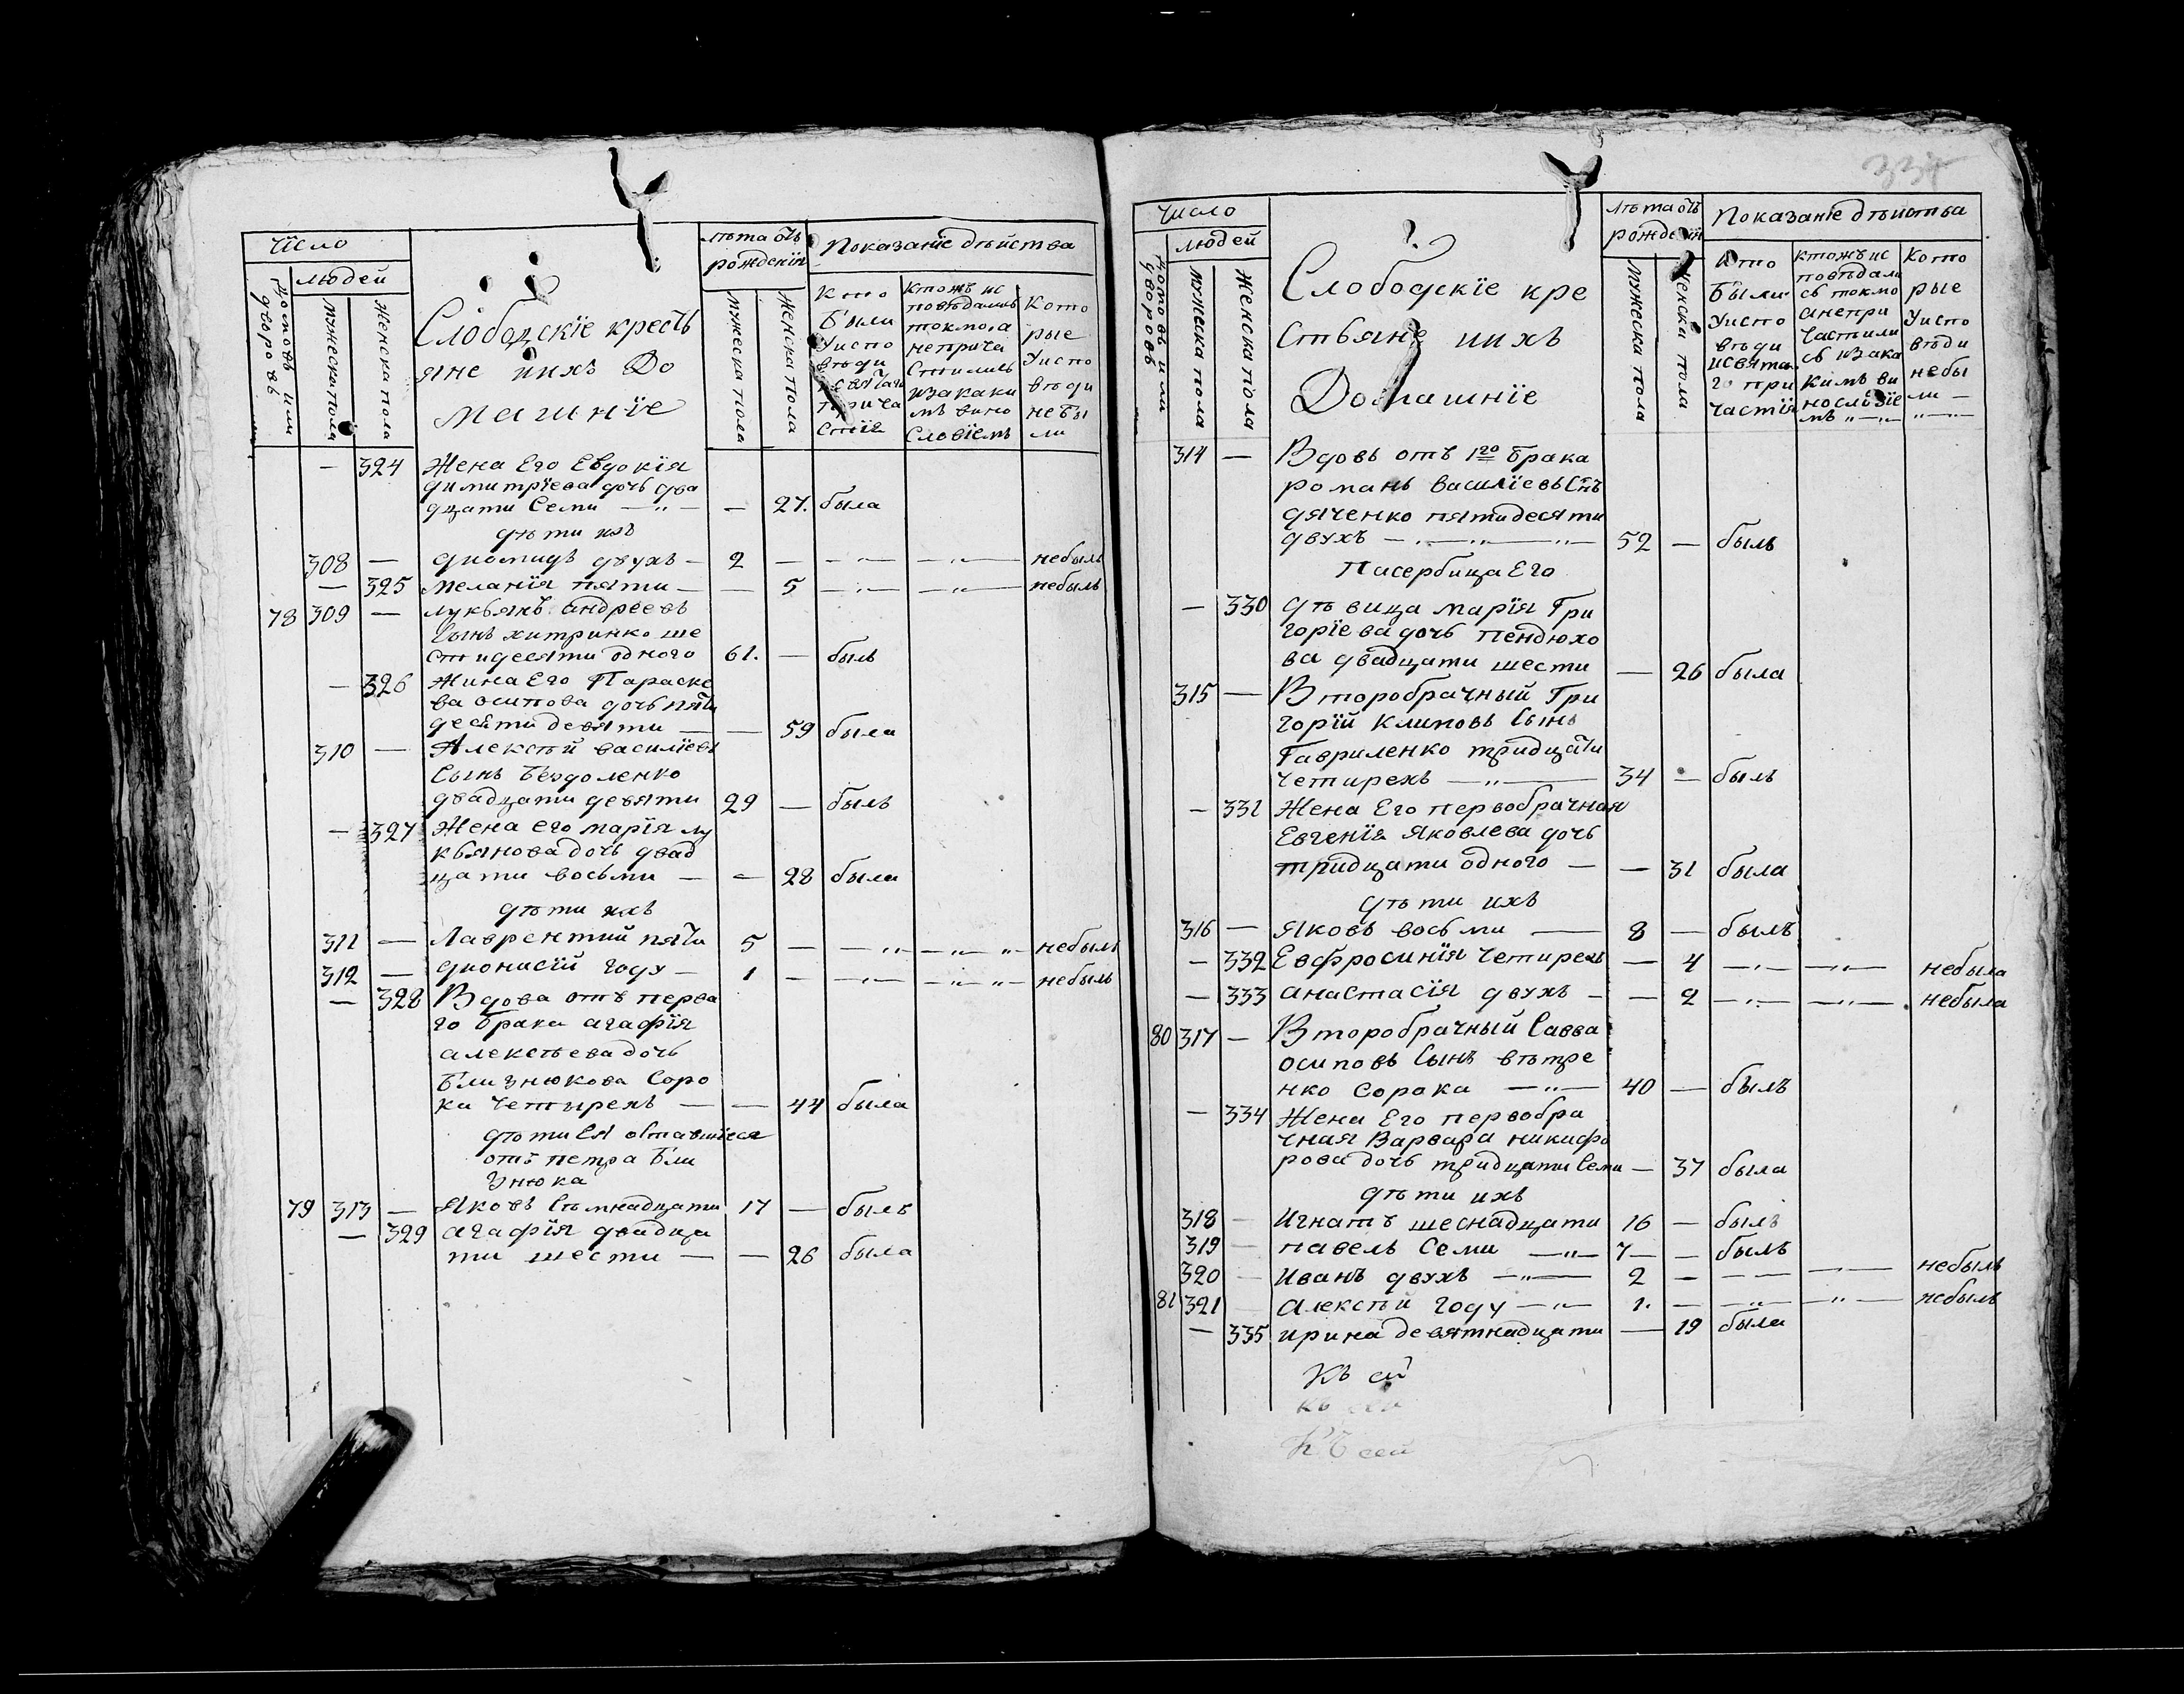 Число
людей
домовъ или дворовъ
мужеска пола
женска пола
Слободскіе кресть
яне ииxъ До
машніе
лѣта отъ
рожденія
мужеска пола
женска пола
Показаніе дѣйства
Кто
были
уиспо
вѣди
исвятаг
прича
стія
ктожъ ис
повѣдались
токмо, а
неприча
стились
изакаки
мъ вино
словіемъ
Кото
рые
уиспо
вѣди
небы
ли
— 324 Жена Его Евдокія
димитріева дочь два
дцати Семи — — 27. была
дѣти ихъ
308 — диомидъ двухъ — 2 — — — небылъ
— 325 меланія пяти — — 5 — — небылъ
78 309 — лукьянъ андреевъ
Сынъ хитринко ше
стидесяти одного 61. — былъ
— 326 Жина Его Параске
ва осипова дочь пяти
десяти девяти — — 59 была
310 — Алексѣй василіевъ
Сынъ Бездоленко
двадцати девяти 29 — былъ
— 327 Жена его марія лу
кьянова дочь двад
цати восьми — — 28 была
дѣти ихъ
311 — Лаврентий пяти 5 — — — небылъ
312 — дионисій году — 1 — — — небылъ
— 328 Вдова отъ перва
го брака агафія
алексѣева дочь
Близнюкова Соро
ка четырехъ — — 44 была
дѣти Ея оставшіеся
отъ петра бли
знюка
79 313 — Яковъ Сѣмнадцати 17 — былъ
— 329 агафія двадца
ти шести — — 26 была
337
Число
людей
домовъ или дворовъ
мужеска пола
женска пола
Слободскіе кре
стьяне ииxъ
Домашніе
лѣта отъ
рожденія
мужеска пола
женска пола
Показаніе дѣйства
Кто
Были
Уиспо
вѣди
исвята
го при
частія
ктожъ ис
повѣдали
сь токмо
анепри
частили
сь изака
кимъ ви
нословіе
мъ
Кото
рые
Уиспо
вѣди
небы
ли —
314 — Вдовъ отъ 1го брака
романъ василіевъ Снъ
дяченко пятидесяти
двухъ — 52 — былъ
Пасербица Его
— 330 дѣвица марія Гри
горіева дочь пендюхо
ва двадцати шести — 26 была
315 — Второбрачный Гри
горій Климовъ Сынъ
Гавриленко тридцати
четирехъ — 34 — былъ
— 331 Жена Его первобрачная
Евгенія Яковлева дочь
тридцати одного — — 31 была
дѣти ихъ
316 — Яковъ восьми — 8 — былъ
— 332 Евфросинія четирехъ — 4 — — небыла
— 333 анастасія двухъ — — 2 — — небыла
80 317 — Второбрачный Савва
осиповъ Сынъ вѣтре
нко Сорака — 40 — былъ
— 334 Жена Его первобра
чная Варвара никифо
рова дочь тридцати Семи — 37 была
дѣти ихъ
318 — Игнатъ шеснадцати 16 — былъ
319 — павелъ Семи — 7 — — былъ
320 — Иванъ двухъ — 2 — — — небылъ
81 321 — алексѣй году — 1. — — — небылъ
— 335 ирина девятнадцати — 19 была
Къ сей
къ сей
Къ сей